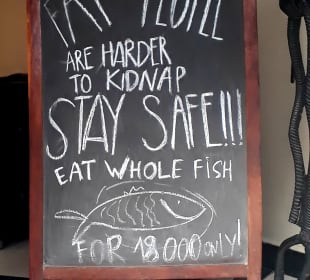 FAT PEOPLE
ARE HARDER
TO KIDNAP
STAY SAFE!!!
EAT WHOLE FISH
FOR 18.000 only!